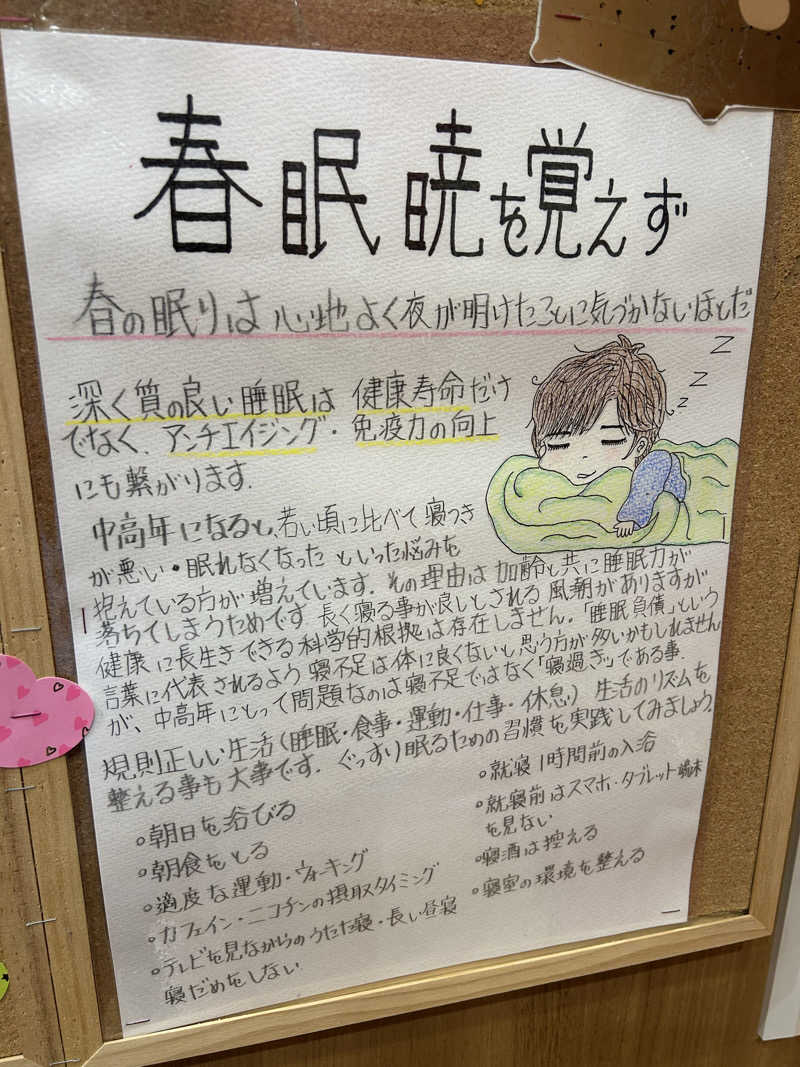 春眠暁を覚えず
春の眠りは心地よく夜が明けたことに気づかないほどだ
Z
Z
Z
深く質の良い睡眠は 健康寿命だけ
でなく、アンチエイジング・免疫力の向上
にも繋がります。
中高年になると、若い頃に比べて寝つき
が悪い・眠れなくなったといった悩みを
抱えている方が増えています。その理由は加齢と共に睡眠力が
落ちてしまうためです 長く寝る事が良いとされる風潮がありますが
健康に長生きできる科学的根拠は存在しません。「睡眠負債」という
言葉に代表されるよう寝不足は体に良くないと思う方が多いかもしれません
が、中高年にとって問題なのは寝不足ではなく「寝過ぎ」である事。
規則正しい生活(睡眠・食事・運動・仕事・休息) 生活のリズムを
整える事も大事です。ぐっすり眠るための習慣を実践してみましょう。
○朝日を浴びる
○朝食をとる
○適度な運動・ウォーキング
○カフェイン・ニコチンの摂取タイミング
○テレビを見ながらのうたた寝・長い昼寝
寝だめをしない
○就寝1時間前の入浴
○就寝前はスマホ・タブレット端末
を見ない
○寝酒は控える
○寝室の環境を整える